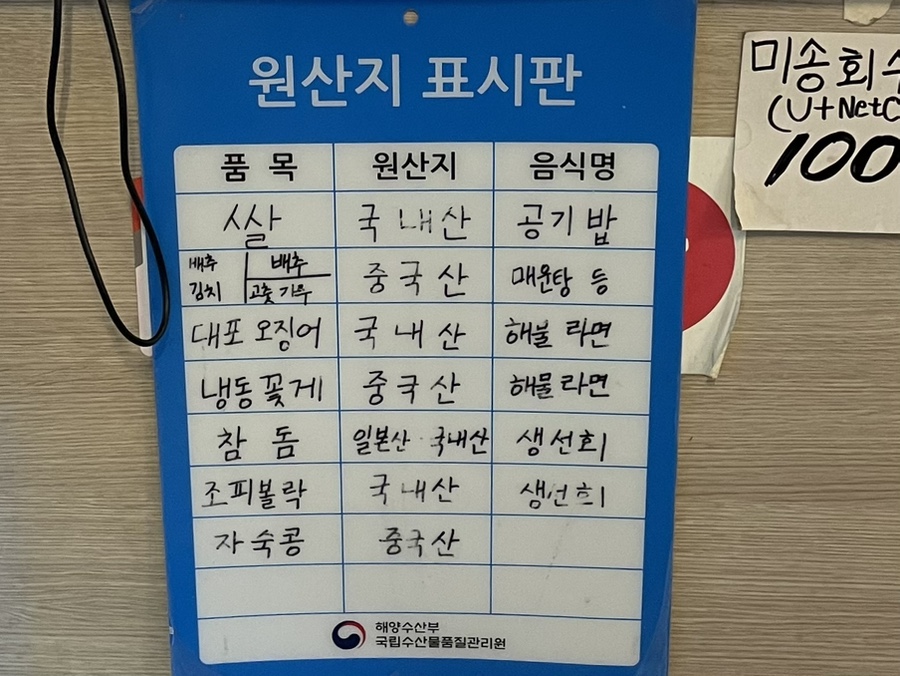 원산지 표시판
품 목 원산지 음식명
쌀 국내산 공기밥
배추김치 배추 고춧가루 중국산 매운탕 등
대포 오징어 국내산 해물 라면
냉동꽃게 중국산 해물라면
참 돔 일본산 · 국내산 생선회
조피볼락 국내산 생선회
자숙콩 중국산
해양수산부
국립수산물품질관리원
미송회수
(U+NetC
100